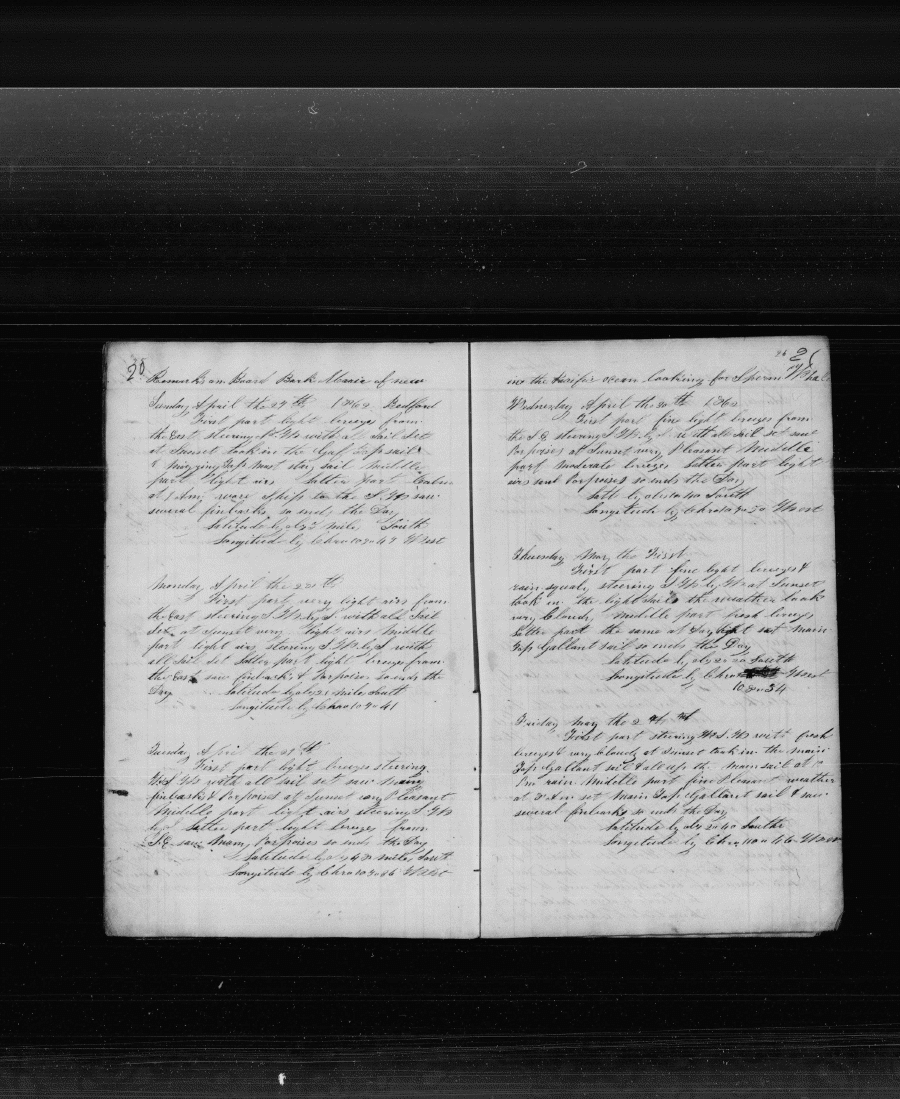 20
Remarks on Board Bark Maria of new
Sunday April the 27th 1862 Bedford
First part light breeze from
the East steering with all Sail Set
at Sunset took in the Gaf Topsail
& mizzing Top Mast stay sail Middle
part light airs Latter part Calm
at 1 Am wore Ship to the S. W saw
several finbacks so ends the Day
Latitude by mile South
Longitude by Chro 107 47 West
Monday April the 28th
First part very light airs from
the East steering S W by S with all Sail
Set at Sunset very light airs Middle
part light airs steering S W by S with
all Sail set Latter part light breeze from
the East saw finbacks & Porpoises so ends the
Day Latitude by obs 21 miles South
Longitude by Chro 107 41
Tuesday April the 29th
First part light breeze steering
W with all sail set saw Many
finbacks & Porpoises at Sunset very Pleasant
Middle part light airs steering S W
by Latter part light breeze from
S.E saw Many Porpoises so ends the Day
Latitude by miles South
Longitude by Chro West
21
in the Pasifer ocean looking for Sperm Whale
Wednesday April the 30th 1862
First part fine light breeze from
the S.E steering S.W. by with all sail set saw
Porpoises at Sunset very Pleasant Middle
part moderate breeze Latter part light
airs saw Porpoises so ends the Day
Latt by obs South
Longitude by Chro West
Thursday May the First
First part fine light breeze &
rain squals steering S W by W at Sunset
took in the light sails the weather look
very Cloudy Middle part fresh breeze
Latter part the same at Day light set main
Top Gallant sail so ends this Day
Latitude by South
Longitude by Chro West
Friday May the 2
First part steering W with fresh
breeze & very Cloudy at Sunset took in the Main
Top Gallant sail the main sail at
Pm rain Middle part fine Pleasant weather
at Am set Main Top Gallant sail & saw
several finbacks so ends the Day
Latitude by South
Longitude by Chro West